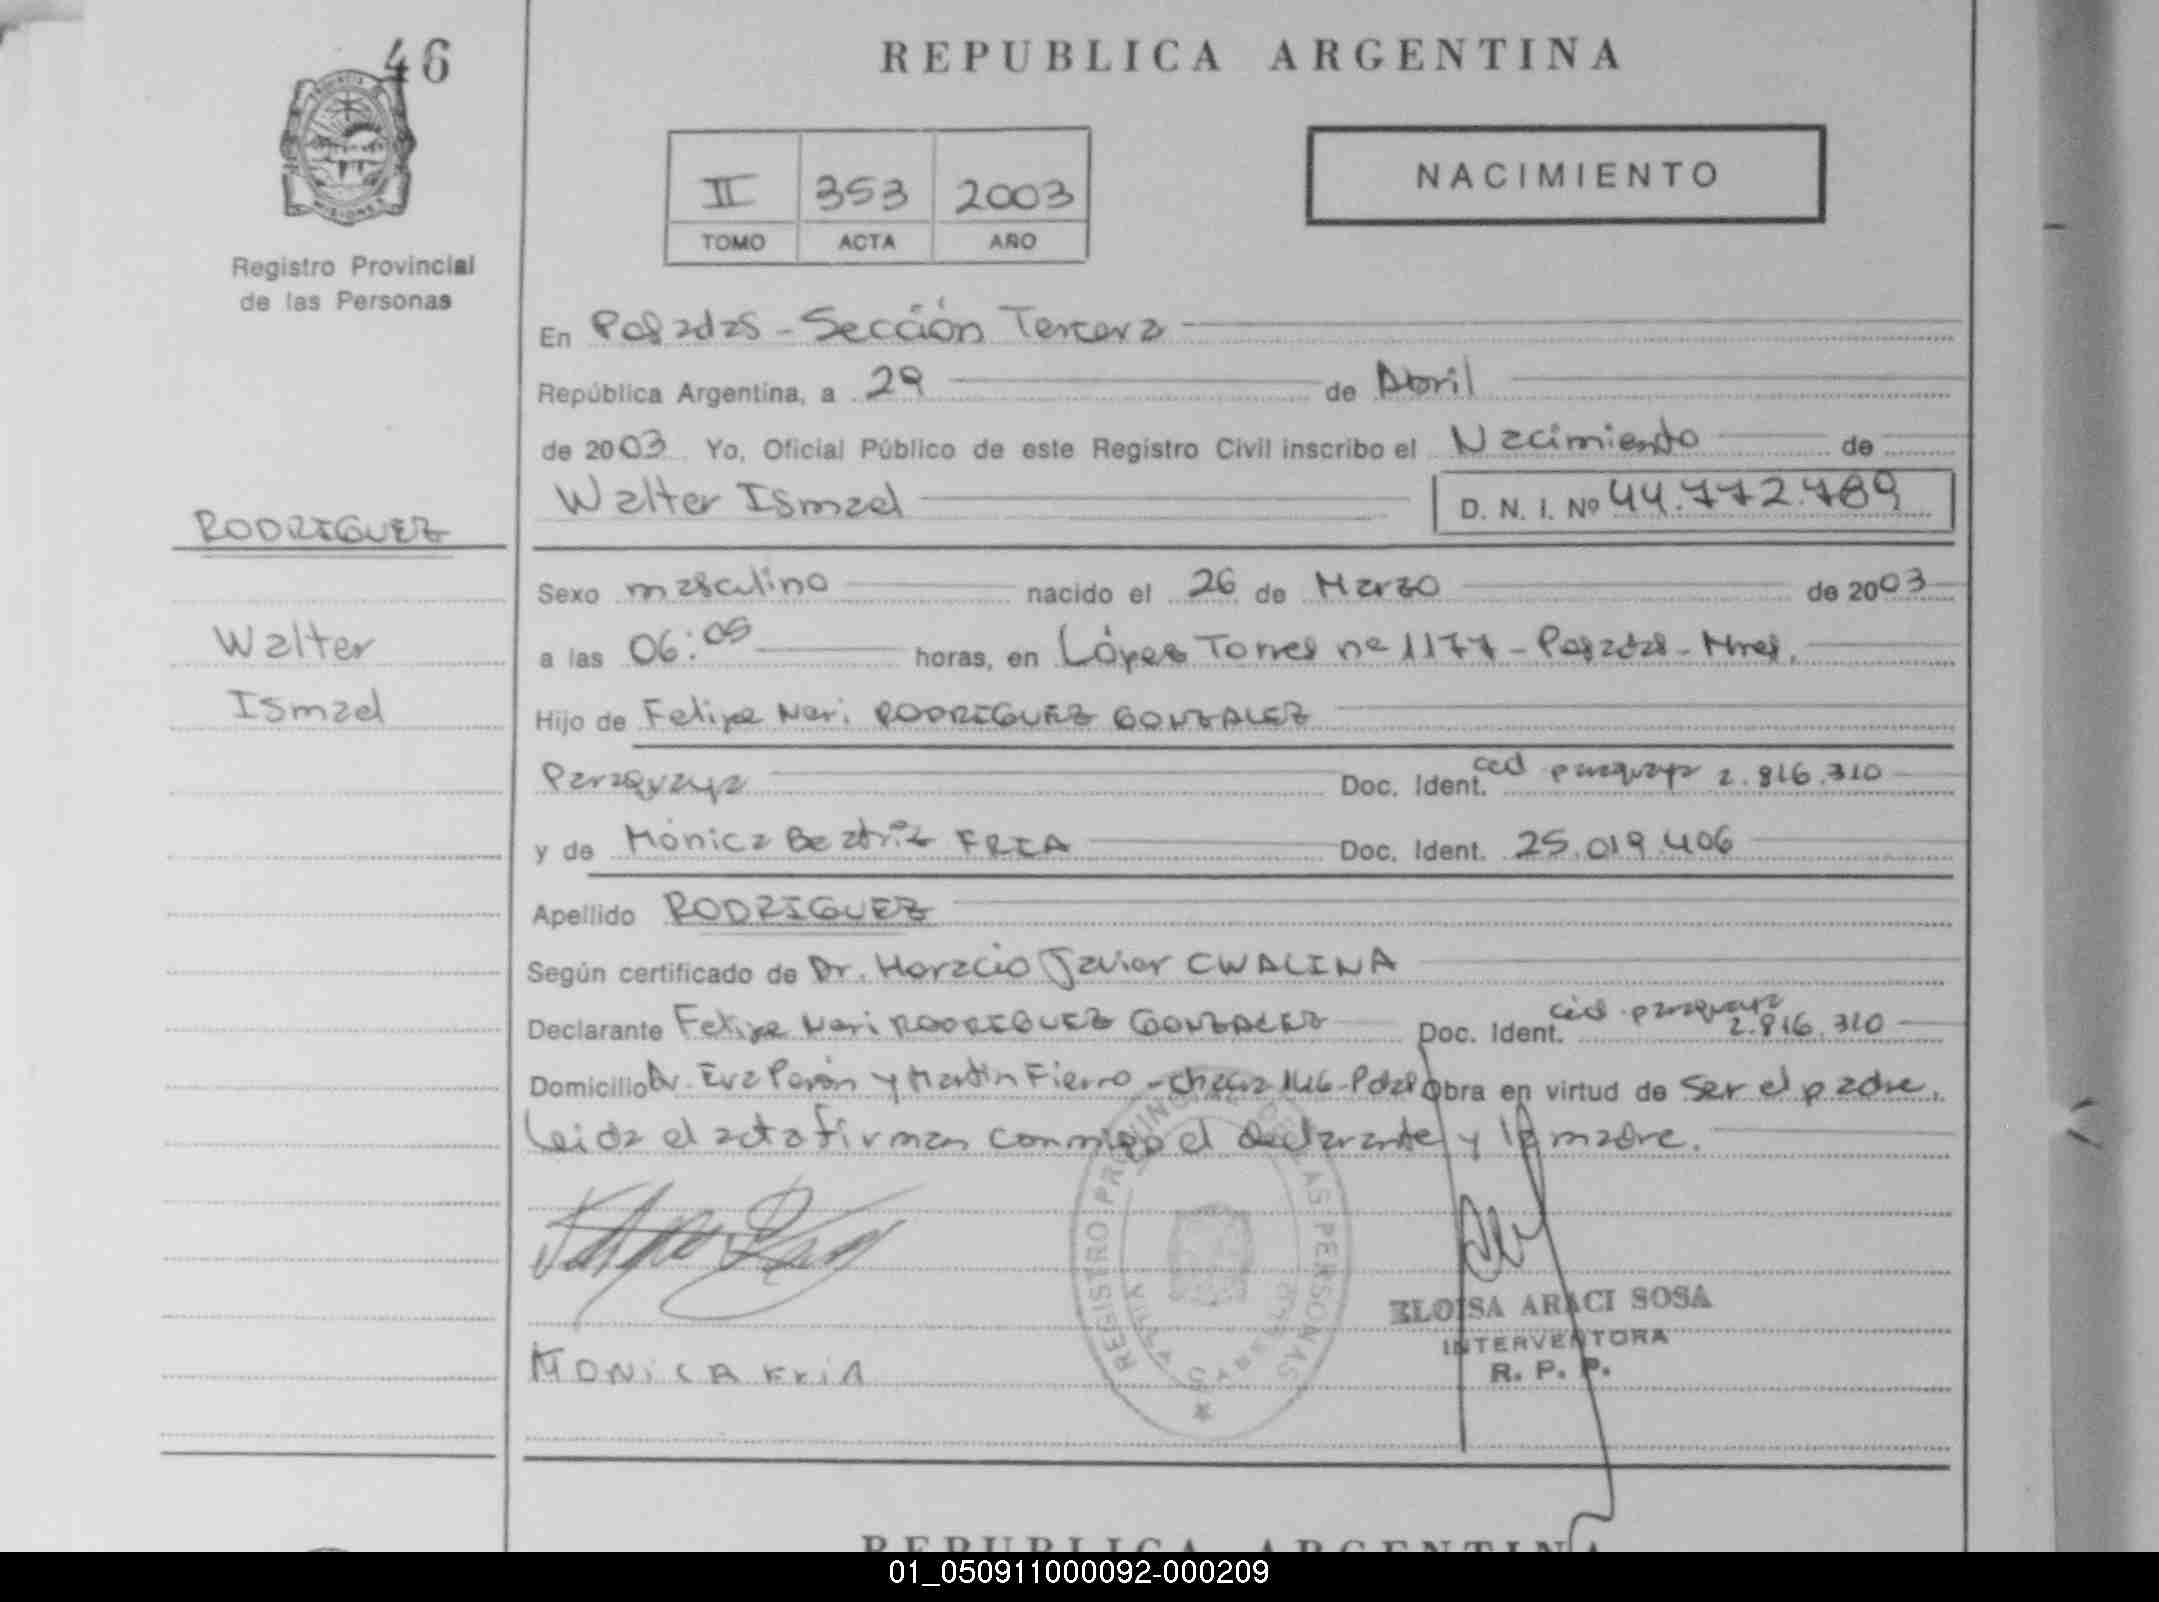 46
REPUBLICA ARGENTINA
NACIMIENTO
II 353 2003
TOMO ACTA AÑO
PROVINCIA DE
MISIONES
Registro Provincial
de las Personas
En Posadas - Sección Tercera
República Argentina, a 29 de Abril
de 2003 Yo, Oficial Público de este Registro Civil inscribo el Nacimiento de
Walter Ismael D. N. I. Nº 44.772.789
RODRIGUEZ
Walter
Ismael
Sexo masculino nacido el 26 de Marzo de 2003
a las 06:05 horas, en López Torres nº 1177 - Posadas - Mnes.
Hijo de Felipe Neri RODRIGUEZ GONZALEZ
Paraguaya Doc. Ident. ced paraguaya 2.816.310
y de Mónica Beatriz FRIA Doc. Ident. 25.019.406
Apellido RODRIGUEZ
Según certificado de Dr. Horacio Javier CWALINA
Declarante Felipe Neri RODRIGUEZ GONZALEZ Doc. Ident. céd. paraguaya 2.816.310
Domicilio Av. Eva Perón y Martín Fierro - Chacra 146 - Pdas Obra en virtud de ser el padre.
Leida el acta firman conmigo el declarante y la madre.
REGISTRO PROVINCIAL DE LAS PERSONAS
MONICA FRIA
ELOISA ARACI SOSA
INTERVENTORA
R. P. P.
REPUBLICA ARGENTINA
01_050911000092-000209